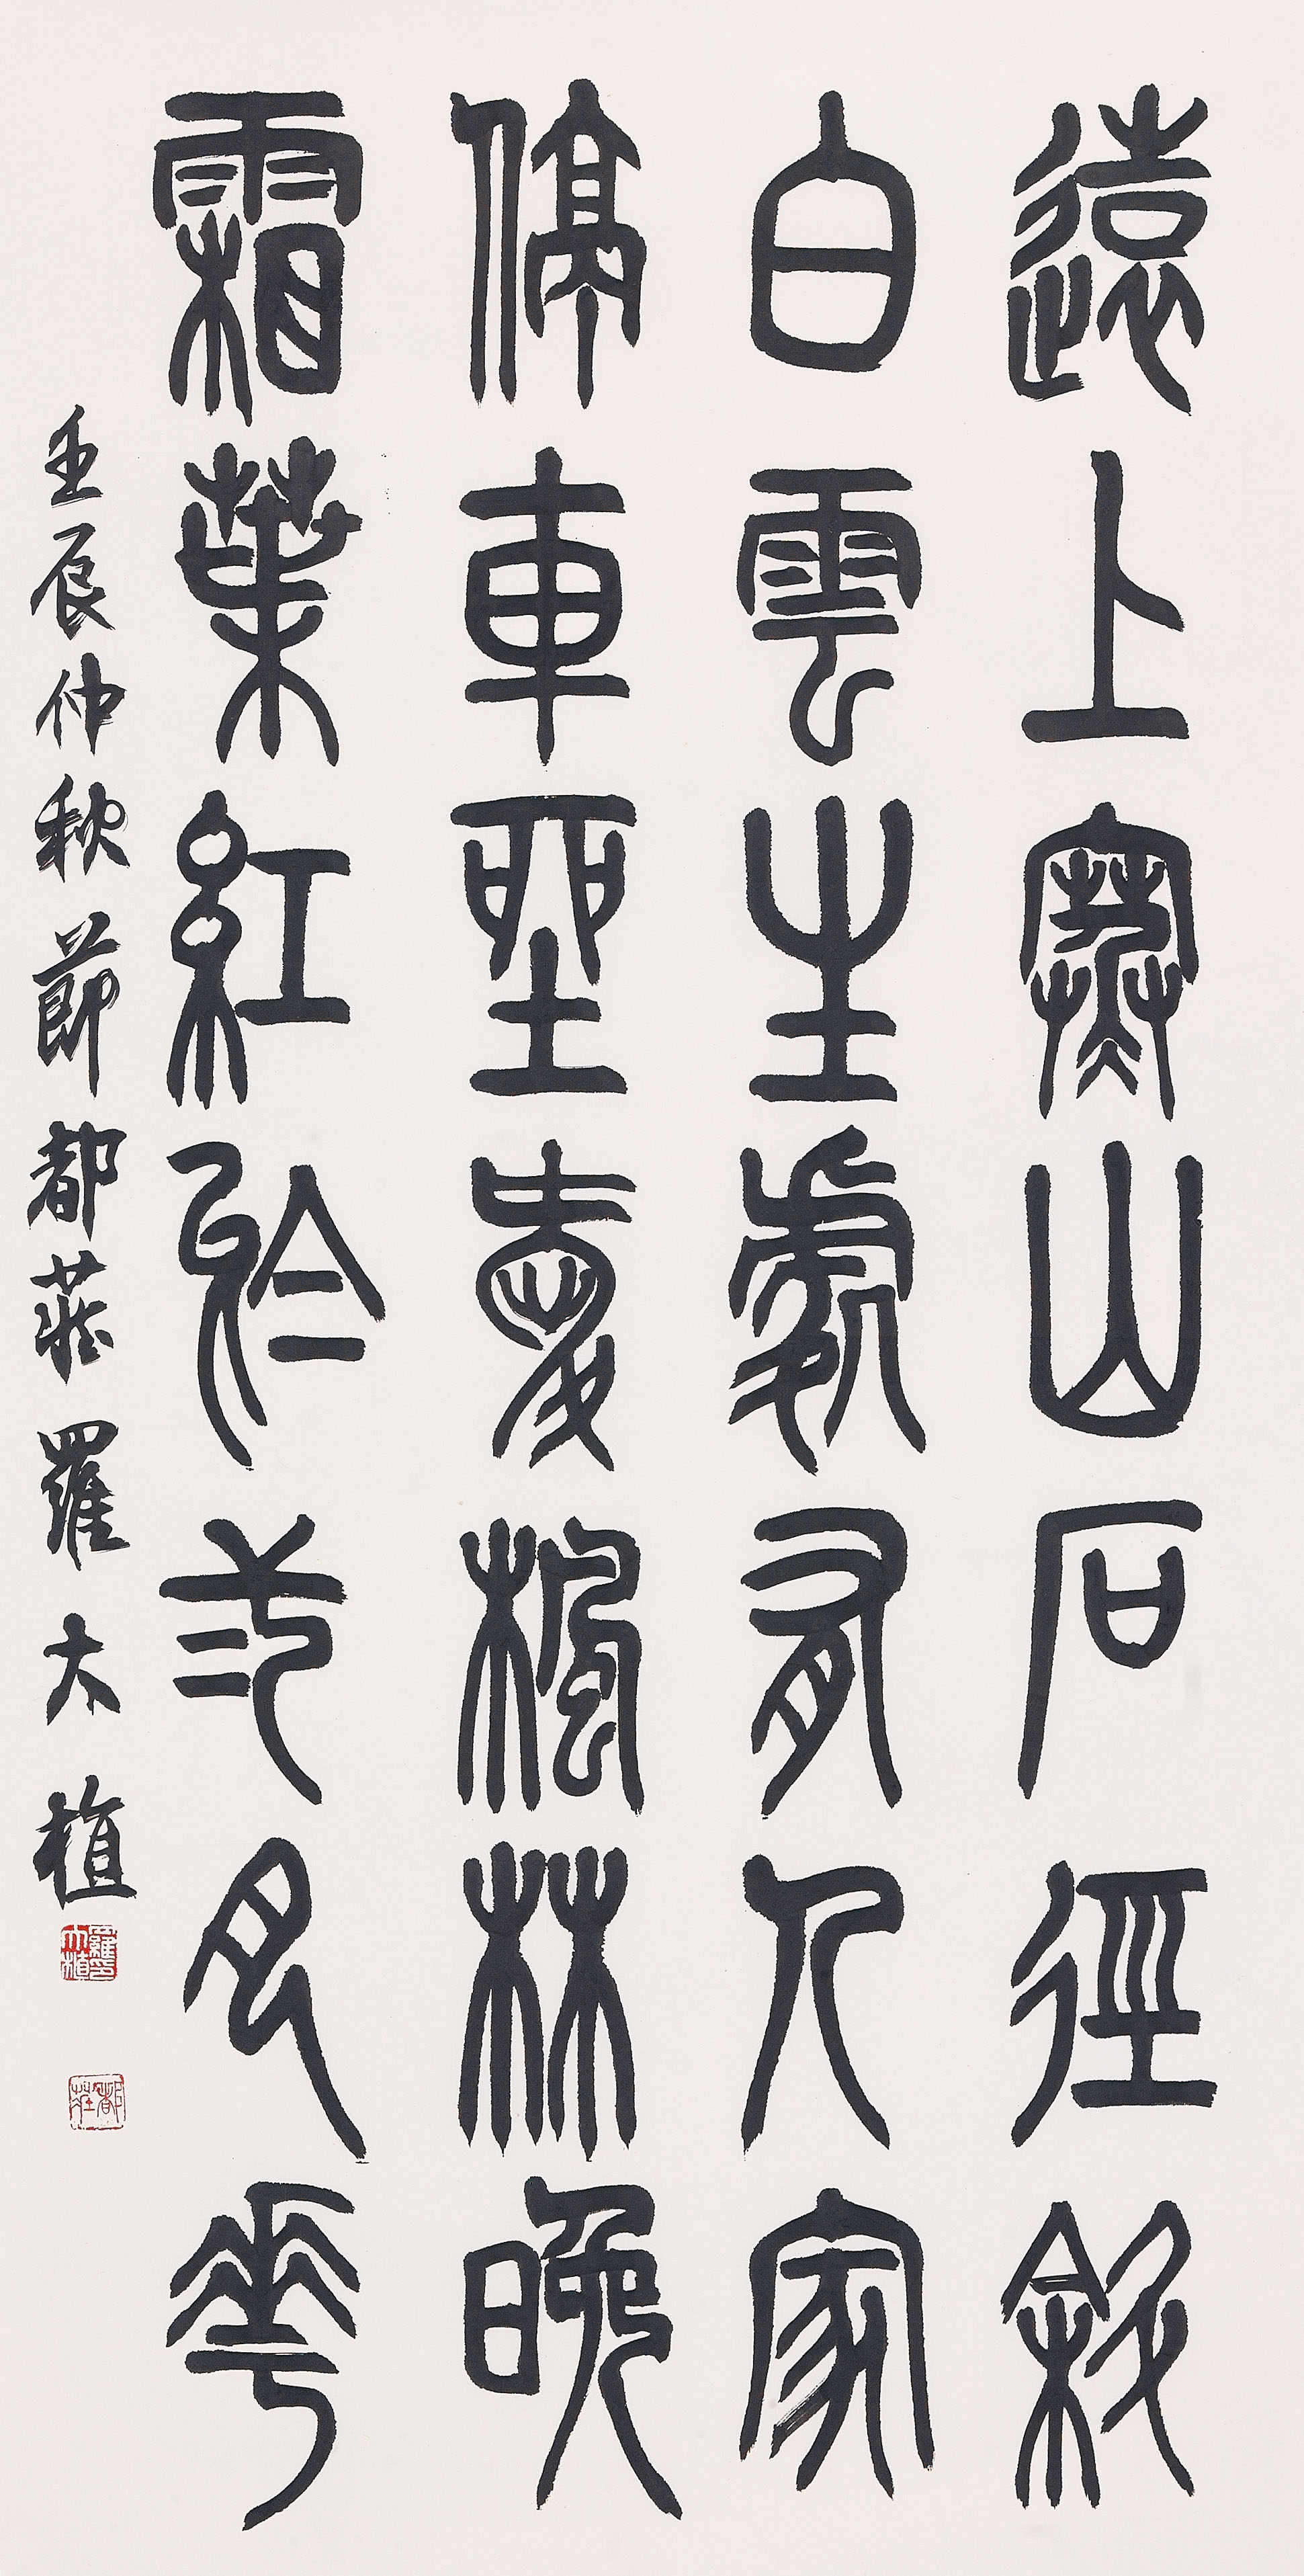 遠上寒山石徑斜
白雲生處有人家
停車坐愛楓林晚
霜葉紅於弍月花
壬辰仲秋節都莊羅大植
羅印大植
都莊